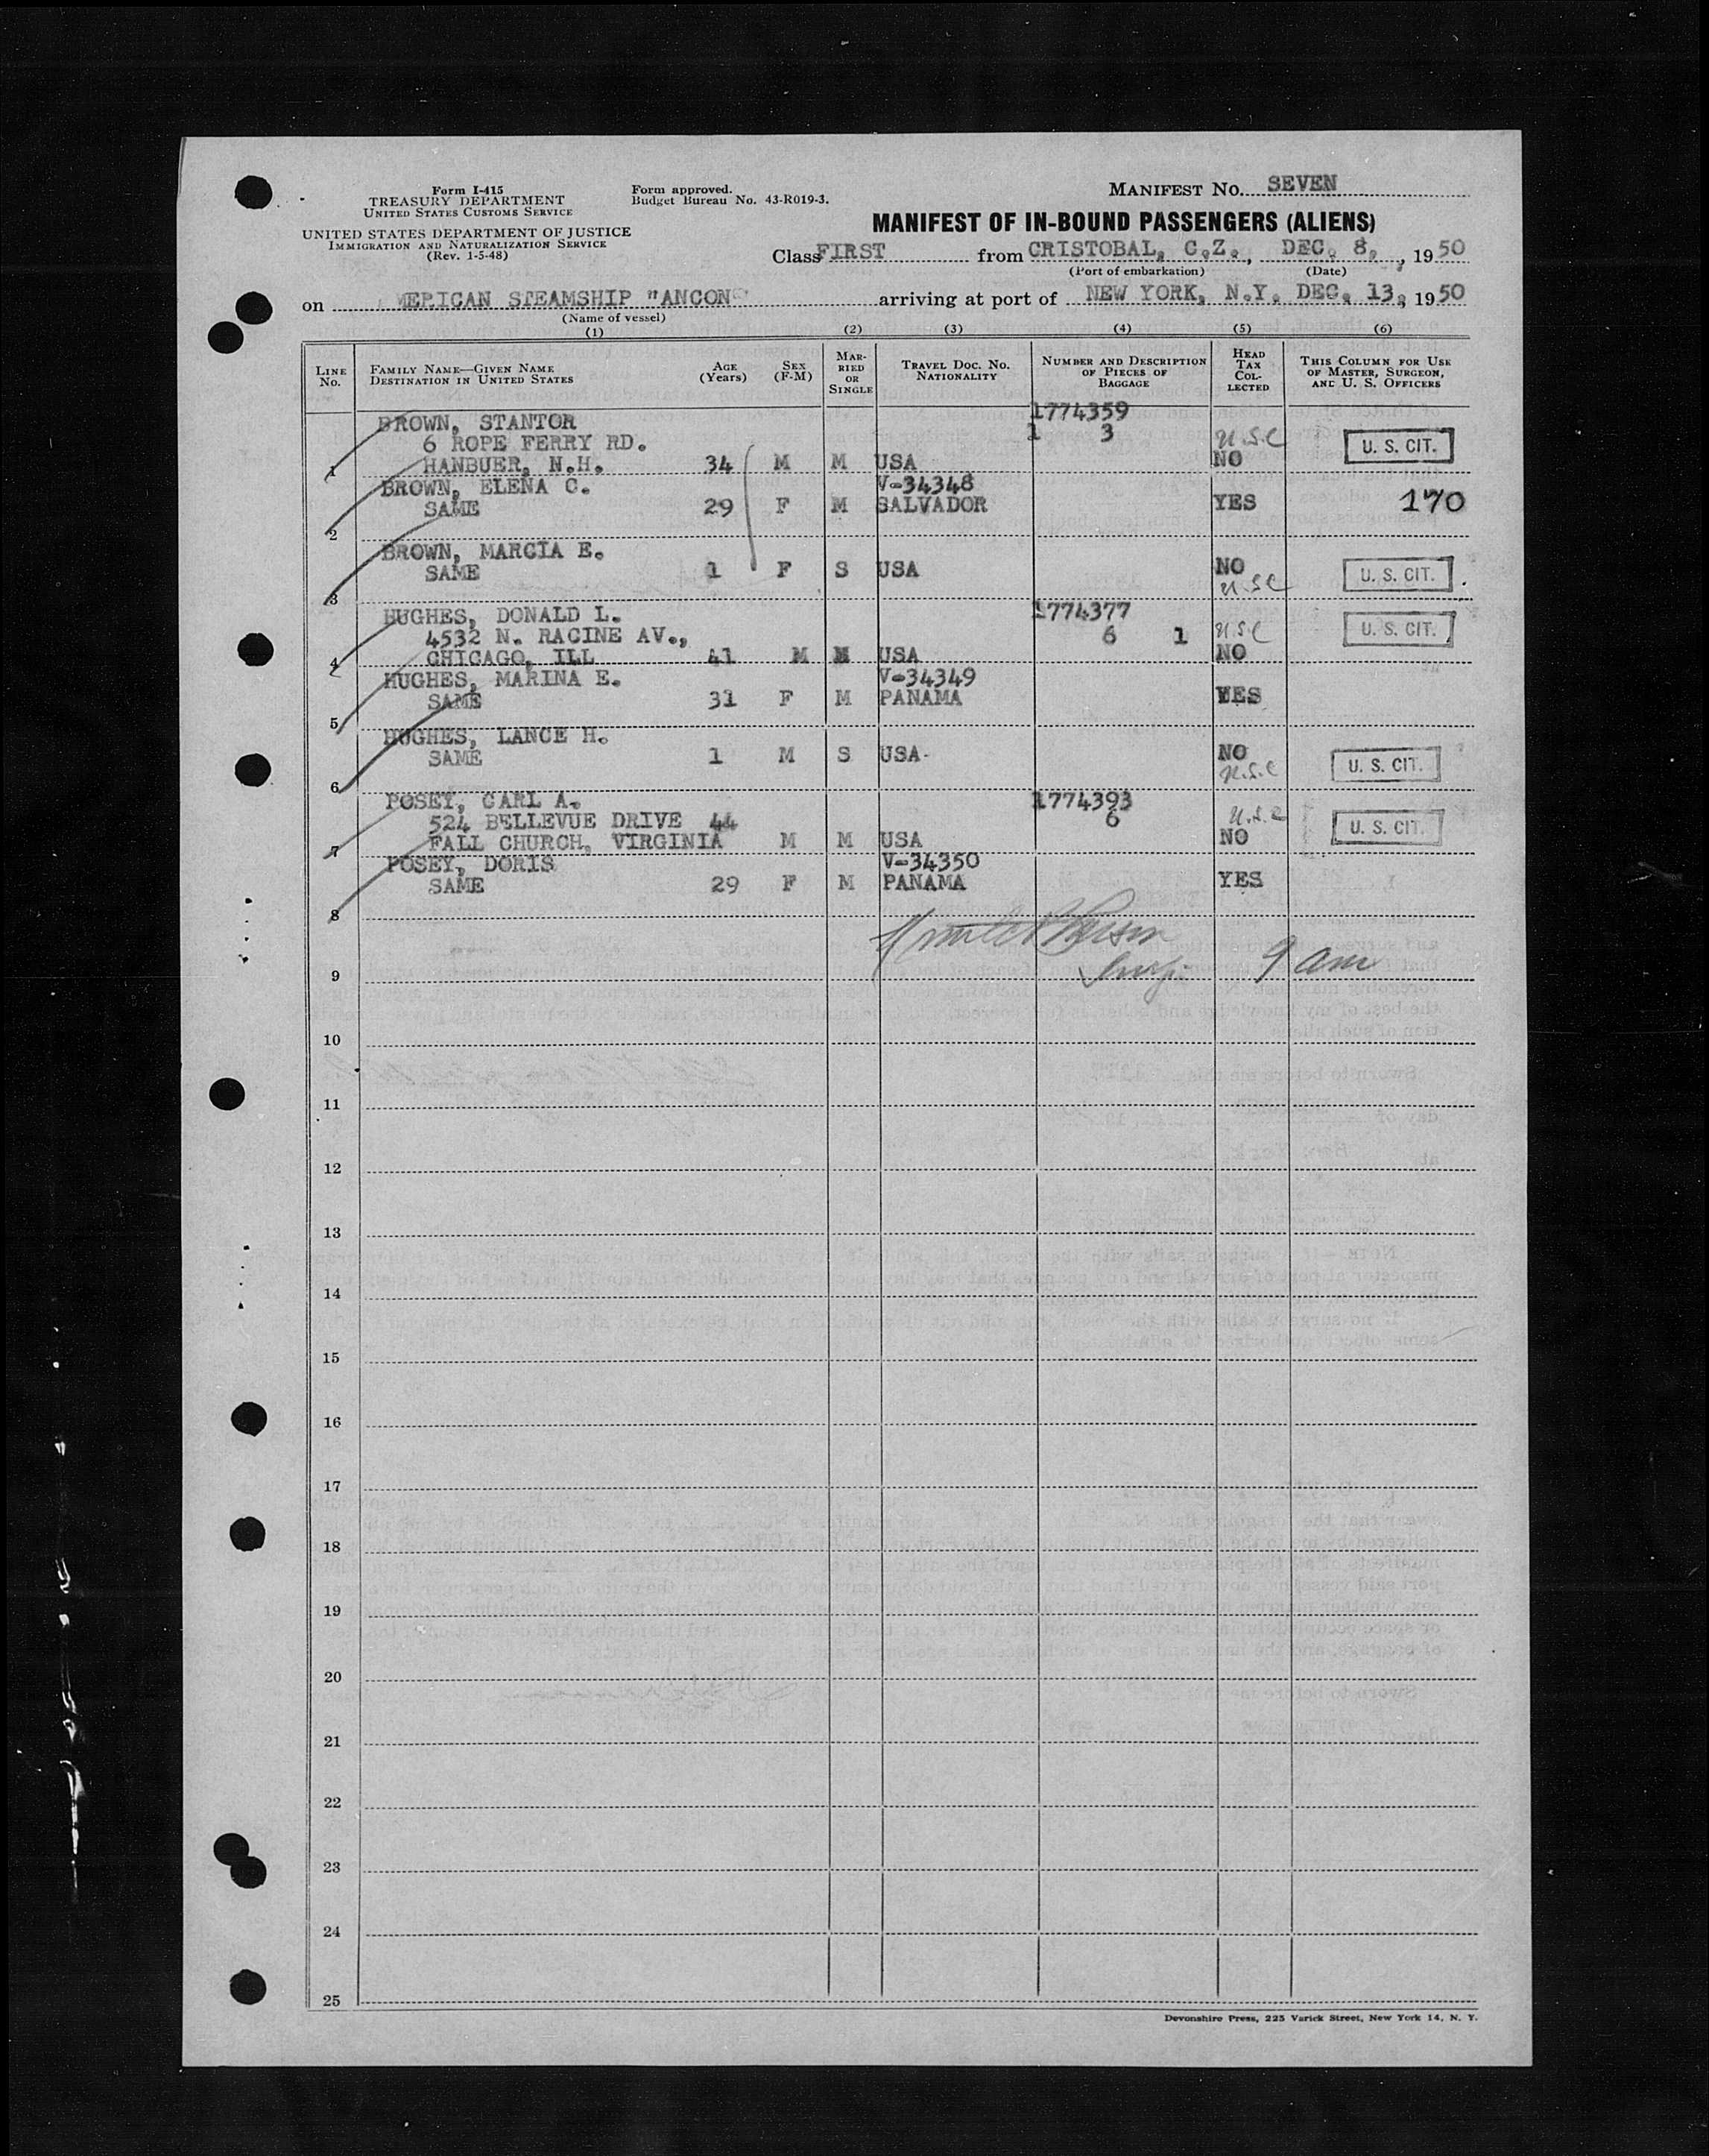 Form I-415
TREASURY DEPARTMENT
UNITED STATES CUSTOMS SERVICE
UNITED STATES DEPARTMENT OF JUSTICE
IMMIGRATION AND NATURALIZATION SERVICE
(Rev. 1-5-48)
Form approved.
Budget Bureau No. 43-R019-3.
MANIFEST NO. SEVEN
MANIFEST OF IN-BOUND PASSENGERS (ALIENS)
Class FIRST from CRISTOBAL, C.Z., DEC. 8, , 1950
(Port of embarkation) (Date)
on MERICAN STEAMSHIP "ANCON" arriving at port of NEW YORK, N.Y. DEC. 13, 1950
(Name of vessel)
(1) (2) (3) (4) (5) (6)
LINE NO. FAMILY NAME—GIVEN NAME DESTINATION IN UNITED STATES AGE (YEARS) SEX (F-M) MARRIED OR SINGLE TRAVEL DOC. NO. NATIONALITY NUMBER AND DESCRIPTION OF PIECES OF BAGGAGE HEAD TAX COLLECTED THIS COLUMN FOR USE OF MASTER, SURGEON, AND U. S. OFFICERS
BROWN, STANTOR 1774359
6 ROPE FERRY RD. 1 3 U.S.C U. S. CIT.
1 HANBUER, N.H. 34 M M USA NO
BROWN, ELENA C. V-34348
SAME 29 F M SALVADOR YES 170
2
BROWN, MARCIA E.
SAME 1 F S USA NO U. S. CIT.
3 U.S.C
HUGHES, DONALD L. 1774377
4532 N. RACINE AV., 6 1 U.S.C U. S. CIT.
4 CHICAGO, ILL 41 M M USA NO
HUGHES, MARINA E. V-34349
SAME 31 F M PANAMA YES
5
HUGHES, LANCE H.
SAME 1 M S USA NO
6 U.S.C U. S. CIT.
POSEY, CARL A. 1774393
524 BELLEVUE DRIVE 44 6 U.S.C U. S. CIT.
7 FALL CHURCH, VIRGINIA M M USA NO
POSEY, DORIS V-34350
SAME 29 F M PANAMA YES
8
9 9 am
10
11
12
13
14
15
16
17
18
19
20
21
22
23
24
25
Devonshire Press, 225 Varick Street, New York 14, N. Y.